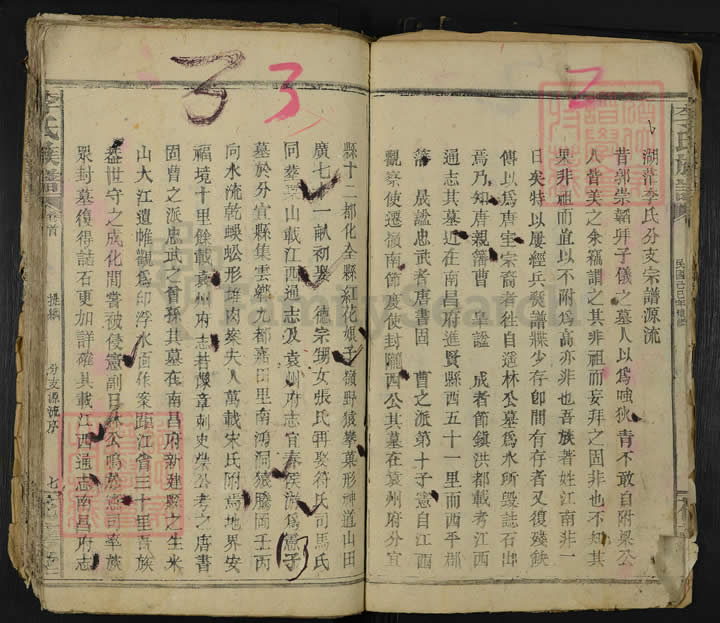 湖茫李氏分支宗譜源流
昔郭崇韜拜子儀之墓人以為嗤狄青不敢自附梁公
人皆美之余竊謂之其非祖而妄拜之固非也不知其
果非祖而宜以不附為高亦非也吾族著姓江南非一
日矣特以屢經兵燹譜牒少存卽間有存者又復殘缺
傳以為唐室宗裔者往自遜林公墓為水所毀誌石出
焉乃知唐親藩曹王臯諡成者節鎮洪都載考江西
通志其墓近在南昌府進賢縣西五十一里而西平郡
晟諡忠武者唐書固曹之派第十子憲自江西
觀察使遷嶺南節度使封隴西公其墓在袁州府分宜
縣十二都化全縣紅花娘子嶺野猿攀菓形神道山田
廣七一畝初娶德宗甥女張氏再娶符氏司馬氏
同葬山載江西通志及袁州府志宜春侯游為憲子
墓於分宜縣集雲鄉九都嘉田里南鴻洞猿騰岡壬丙
向水流乾蜈蚣形雄肉葵夫人萬載宋氏附焉地界安
福境十里餘載袁州府志若豫章刺史榮公考之唐書
固曹之派忠武之曾孫其墓在南昌府新建縣之生米
山大江遺帷觀為印浮水面作案距江嘗三十里吾族
世守之成化間嘗被侵憲副日休公鳴於憲司率族
眾封墓復得誌石更加詳確其載江西通志南昌府志
李氏族譜
卷首
提綱
分支源流序
七
李氏族譜
3
3
13
FamilySearch